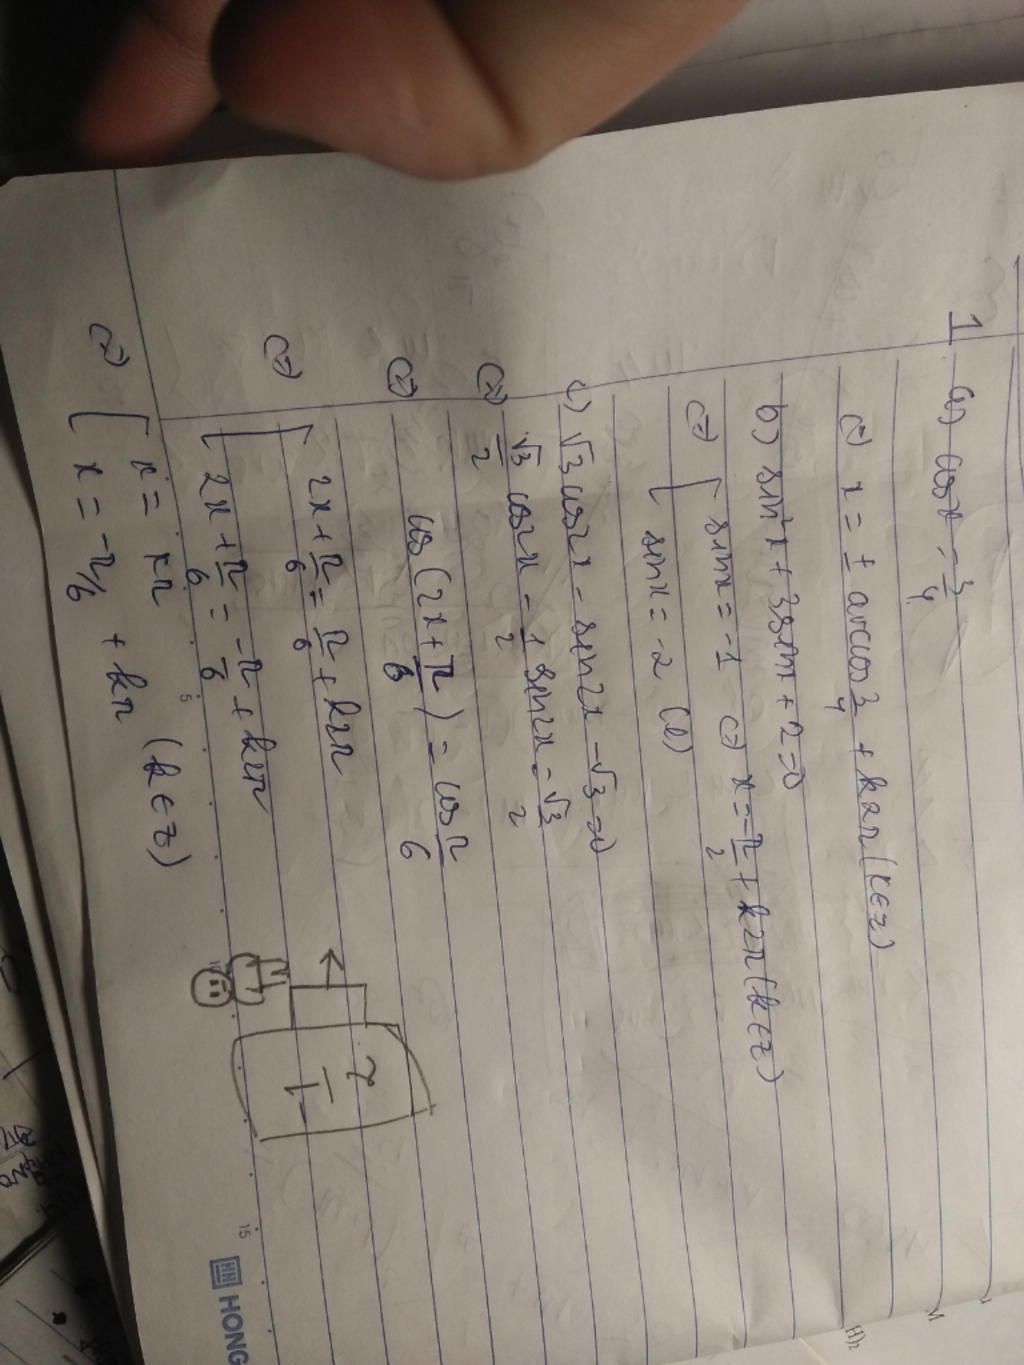 1 a) cosx = 3/4
<=> x = ± arccos 3/4 + k2π (k∈Z)
b) sin²x + 3sinx + 2 = 0
<=> [ sinx = -1 <=> x = -π/2 + k2π (k∈Z)
sinx = -2 (l)
c) √3 cos2x - sin2x - √3 = 0
<=> √3/2 cos2x - 1/2 sin2x = √3/2
<=> cos(2x + π/6) = cos π/6
<=> [ 2x + π/6 = π/6 + k2π
2x + π/6 = -π/6 + k2π
<=> [ x = kπ
x = -π/6 + kπ (k∈Z)
2
1
5
15
HONG